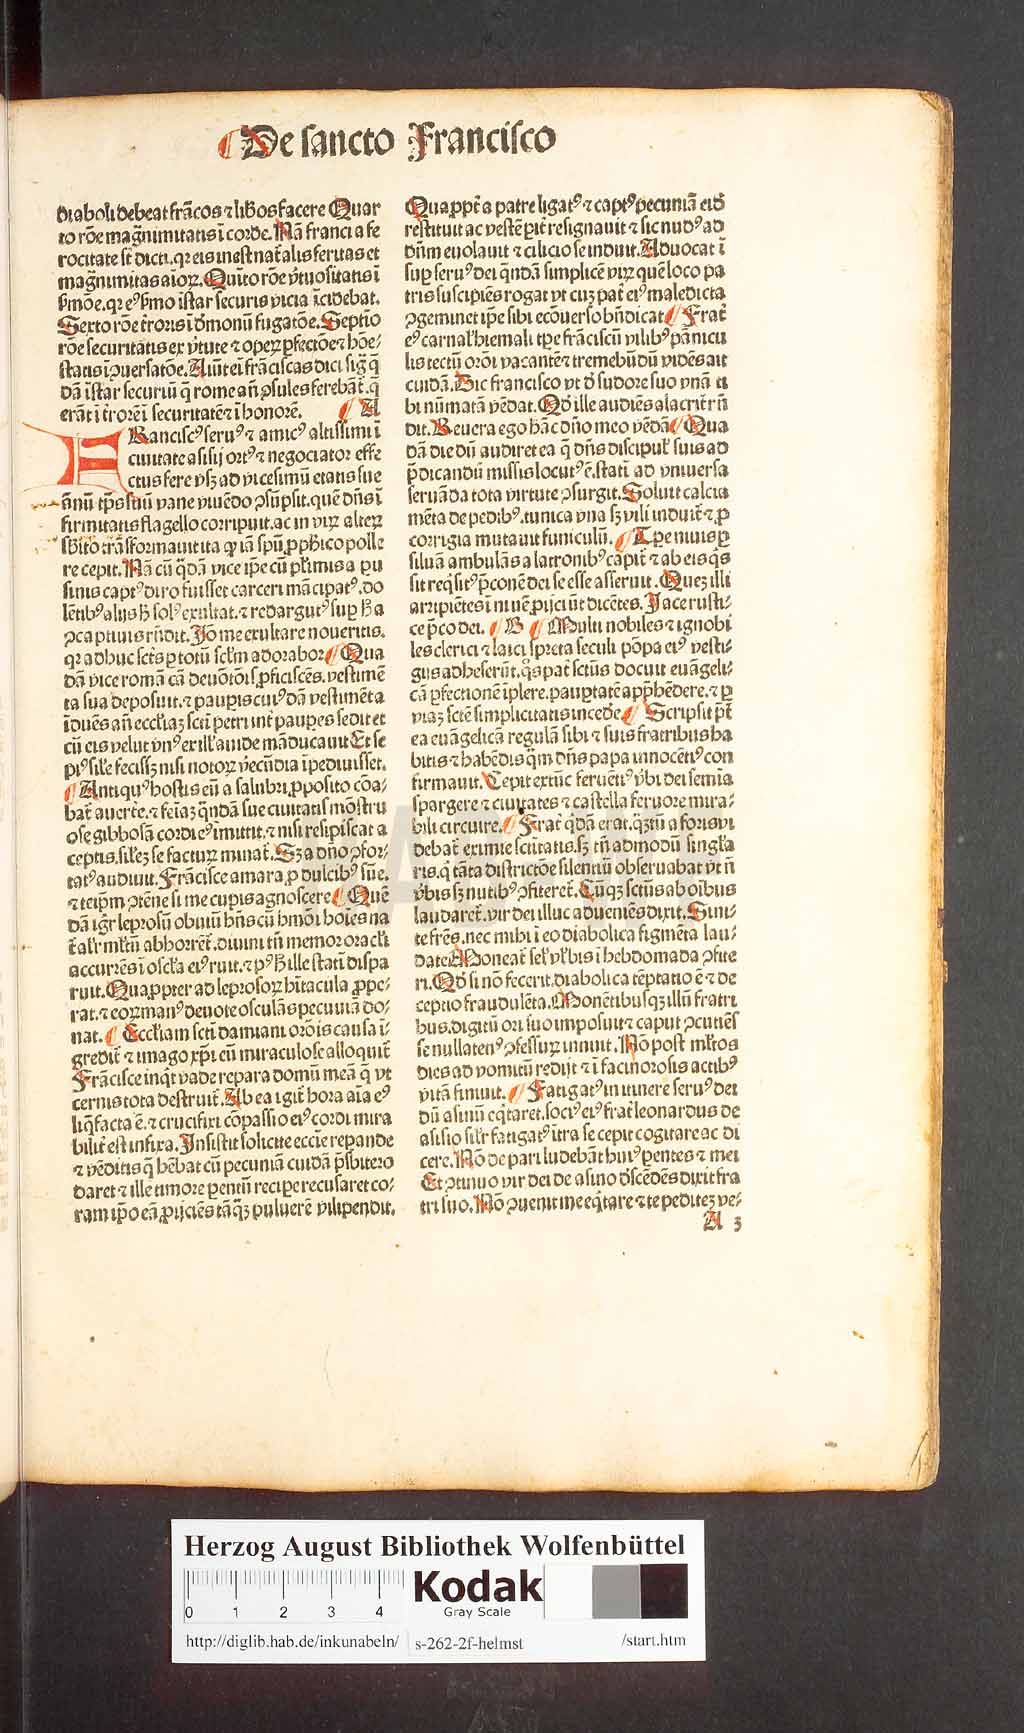 De sancto Francisco
diaboli debeat frãcos ⁊ lib̃os facere Quar
to rõe mag̃nimitatis ĩ corde. Nã franci a fe
rocitate st̃ dicti. qꝛ eis inest nat̃alis feritas et
mag̃nimitas aĩoꝝ. Quĩto rõe ṽtuositatis ĩ
ẜmõe. qꝛ eꝰ ẜmo ĩstar securis vicia ĩcidebat.
Sexto rõe t̃roris ĩ dẽmonũ fugatõe. Septĩo
rõe securitatis ex ṽtute ⁊ opeꝝ ꝑfectõe ⁊ hõe-
statis ĩ ꝯuersatõe. Aiũt eĩ frãciscas dici sig̃ q̃
dã ĩstar securiũ q̃ rome añ ꝯsules ferebãt̃. q̃
erãt ĩ t̃rorẽ ĩ securitatẽ ⁊ ĩ honorẽ. A
FRanciscꝰ seruꝰ ⁊ amicꝰ altissimi ĩ
ciuitate asisij ortꝰ ⁊ negociator effe
ctus fere vsqꝫ ad vicesimũ etatis sue
ãnũ tp̃s suũ vane viuẽdo ꝯsũpsit. quẽ dñs ĩ
firmitatis flagello corripuit. ac in viꝝ alteꝝ
sb̃ito trãsformauit ita ꝙ iã spũ ꝓph̃ico polle
re cepit. Nã cũ q̃dã vice ip̃e cũ pl̃imis a pu
sinis captꝰ diro fuisset carceri mãcipatꝰ. do
lẽtibꝰ alijs h̃ solꝰ exultat. ⁊ redargutꝰ suꝑ h̃ a
ꝯcaptiuis rñdit. Iõ me exultare noueritis.
qꝛ adhuc sct̃s ꝑ totũ scl̃m adorabor Qua
dã vice romã cã deuotõis ꝓficiscẽs. vestimẽ
ta sua deposuit. ⁊ pauꝑis cuiꝰdã vestimẽta
ĩduẽs añ eccl̃iaꝫ scti petri int̃ pauꝑes sedit et
cũ eis velut vnꝰ ex ill̃ auide mãducauit Et se
piꝰ sil̃e fecissꝫ nisi notoꝝ ṽecũdia ĩpediuisset.
Antiquꝰ hostis eũ a salubri ꝓposito cõa-
bat̃ auerte̾. ⁊ feĩaꝫ q̃ndã sue ciuitatis mõstru
ose gibbosã cordi eꝰ ĩmittit. ⁊ nisi resipiscat a
ceptis. sil̃eꝫ se factuꝝ minat̃. Sꝫ a dño ꝯfor-
tatꝰ audiuit. Frãcisce amara ꝓ dulcibꝰ sũe.
⁊ teip̃m ꝯtẽne si me cupis agnoscere Quẽ
dã igr̃ leprosũ obuiũ hñs cũ hmõi hoĩes na
t̃alr̃ ml̃tũ abhorrẽt. diuini tñ memor oracl̃i
accurẽs ĩ oscl̃a eiꝰ ruit. ⁊ pꝰ h̃ ille statĩ dispa
ruit. Quaꝓpter ad leprosoꝝ hĩtacula ꝓpe-
rat. ⁊ eoꝝ manꝰ deuote osculãs pecuniã do-
nat. Eccl̃iam scti damiani orõis causa ĩ-
gredit̃ ⁊ imago xp̃i eũ miraculose alloquit̃
Frãcisce inq̃t vade repara domũ meã q̃ vt
cernis tota destruit̃. Ab ea igit̃ hora aĩa eꝰ
liq̃facta ẽ. ⁊ crucifixi cõpassio eiꝰ cordi mira
bilit̃ est infixa. Insistit solicite eccl̃ie repande
⁊ ṽẽditis q̃ hẽbat cũ pecuniã cuidã p̃sbitero
daret ⁊ ille timore pẽntũ reciꝑe recusaret co-
ram ip̃o eã ꝓijciẽs tãq̃ꝫ puluerẽ vilipendit.
Quaꝓpt̃ a patre ligatꝰ ⁊ captꝰ pecuniã eidẽ
restituit ac vestẽ ꝑit̃ resignauit ⁊ sic nudꝰ ad
dñm euolauit ⁊ cilicio se induit. Aduocat ĩ
suꝑ seruꝰ dei q̃ndã simplicẽ viꝝ quẽ loco pa
tris suscipiẽs rogat vt cuꝫ pat̃ eiꝰ maledicta
ꝯgeminet ip̃e sibi ecõuerso bñdicat Frat̃
eꝰ carnal̃ hiemali tꝑe frãciscũ vilibꝰ pãnicu
lis tectũ orõi vacantẽ ⁊ tremebũdũ vidẽs ait
cuidã. Dic francisco vt d̃ sudore suo vnã ti
bi nũmatã vẽdat. Qd̃ ille audiẽs alacrit̃ rñ
dit. Reuera ego h̃c dño meo vẽdã Qua
dã die dũ audiret ea q̃ dñs discipul̃ suis ad
p̃dicandũ missis locutꝰ ẽ. statĩ ad vniuersa
seruãda tota virtute ꝯsurgit. Soluit calcia
mẽta de pedibꝰ. tunica vna sꝫ vili induit̃ ⁊ ꝓ
corrigia mutauit funiculũ. Tꝑe niuis ꝑ
siluã ambulãs a latronibꝰ capit̃ ⁊ ab eis q̃s
sit req̃sitꝰ p̃conẽ dei se esse asseruit. Queꝫ illi
arripiẽtes ĩ niuẽ ꝓijciũt dicẽtes. Iace rusti-
ce p̃co dei. B Multi nobiles ⁊ ignobi
les clerici ⁊ laici spreta seculi põpa eiꝰ vesti-
gijs adheserũt. q̃s pat̃ sctũs docuit euãgeli-
cã ꝑfectionẽ ĩplere. pauꝑtatẽ app̃hẽdere. ⁊ ꝑ
viaꝫ sctẽ simplicitatis incede̾. Scripsit p̃t
ea euãgelicã regulã sibi ⁊ suis fratribus ha
bitis ⁊ habẽdis q̃m dñs papa innocẽtiꝰ con
firmauit. Cepit extũc feruẽtiꝰ ṽbi dei semĩa
spargere ⁊ ciuitates ⁊ castella feruore mira-
bili circuire. Frat̃ q̃dã erat. q̃ꝫtũ a foris vi
debat̃ eximie sctitatis. sꝫ tñ admodũ singl̃a
ris. q̃ tãta districtõe silentiũ obseruabat vt ñ
ṽbis sꝫ nutibꝰ ꝯfiteret̃. Cũqꝫ sctũs ab oĩbus
laudaret̃. vir dei illuc adueniẽs dixit. Sini-
te frẽs. nec mihi ĩ eo diabolica figmẽta lau-
date Moneat̃ sel̃ vl̃ bis ĩ hebdomada ꝯfite
ri. Qd̃ si nõ fecerit. diabolica tẽptatio ẽ ⁊ de
ceptio fraudulẽta. Monẽtibusqꝫ illũ fratri
bus. digitũ ori suo imposuit ⁊ caput ꝯcutiẽs
se nullatenꝰ ꝯfessuꝝ innuit. Nõ post ml̃tos
dies ad vomitũ redijt ⁊ ĩ facinorosis actibꝰ
vitã finiuit. Fatigatꝰ in itinere seruꝰ dei
dũ asinũ eq̃taret. sociꝰ eiꝰ frat̃ leonardus de
asisio sil̃r fatigatꝰ ĩtra se cepit cogitare ac di
cere. Nõ de pari ludebãt huiꝰ pẽntes ⁊ mei
Et ꝯtinuo vir dei de asino d̾scẽdẽs dixit fra
tri suo. Nõ ꝯuenit me eq̃tare ⁊ te pediteꝫ ve-
A 3
Herzog August Bibliothek Wolfenbüttel
0 1 2 3 4
Kodak
Gray Scale
http://diglib.hab.de/inkunabeln/ s-262-2f-helmst /start.htm